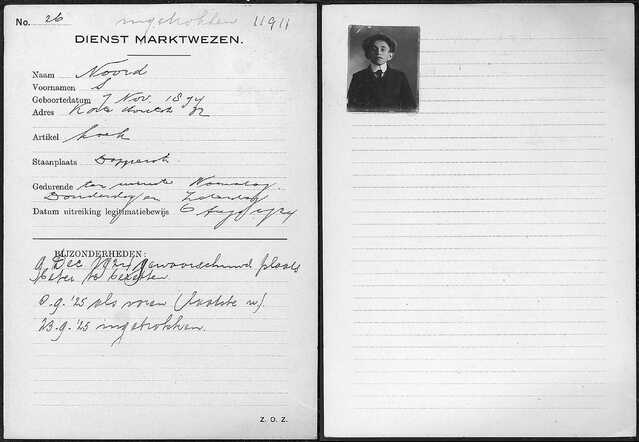 No. 26 ingetrokken 11911
DIENST MARKTWEZEN.
Naam Noord
Voornamen S
Geboortedatum 7 Nov. 1874
Adres
Artikel koek
Staanplaats Dapperstr
Gedurende Maandag
Donderdag en Zaterdag
Datum uitreiking legitimatiebewijs 6 Aug 1924
BIJZONDERHEDEN:
9 Dec 1924 gewaarschuwd plaats
beter te bezetten
.9.'25 als voren (laatste w)
23.9.'25 ingetrokken.
Z. O. Z.